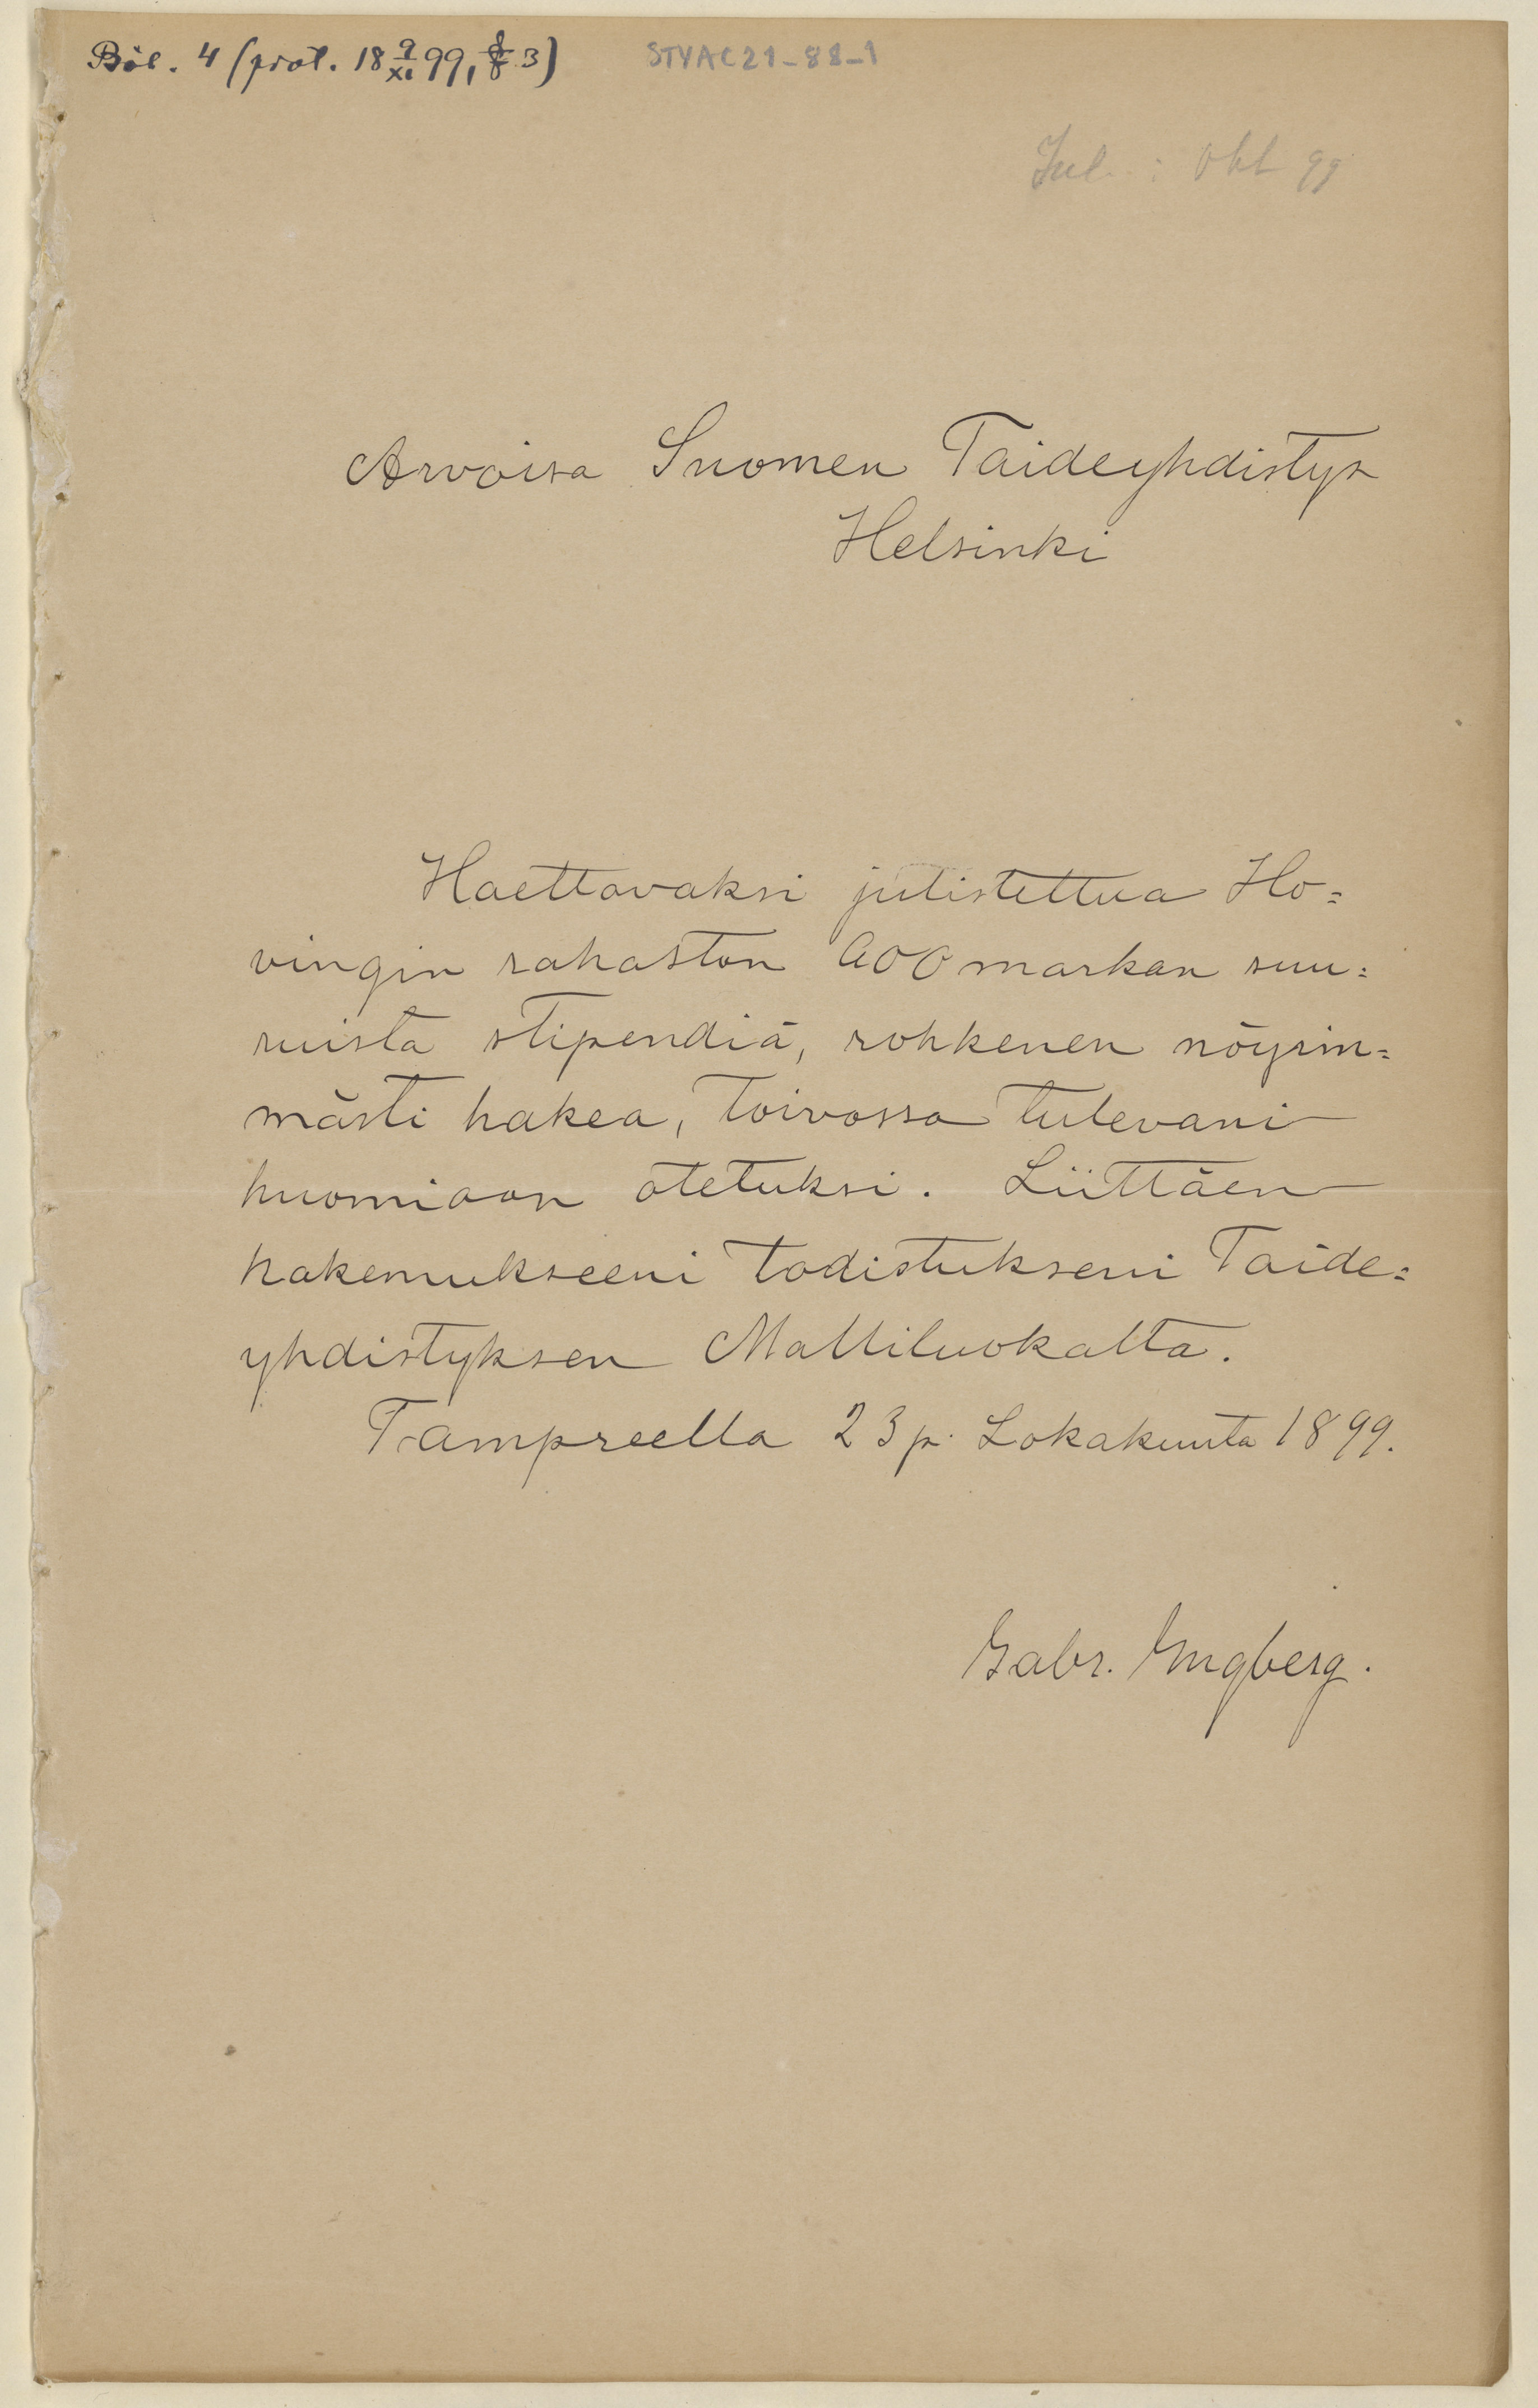 Bil. 4 (prot. 18 9/XI 99, § 3)
STYAC21-88-1
Ink. i Okt 99
Arvoisa Suomen Taideyhdistys
Helsinki
Haettavaksi julistettua Ho=
vingin rahaston markan suu=
ruista stipendiä, rohkenen nöyrim=
mästi hakea, toivossa tulevani
huomioon otetuksi. Liittäen
hakemukseeni todistukseni Taide=
yhdistyksen Malliluokalta.
Tampreella 23 p. Lokakuuta 1899.
Gabr. Engberg.